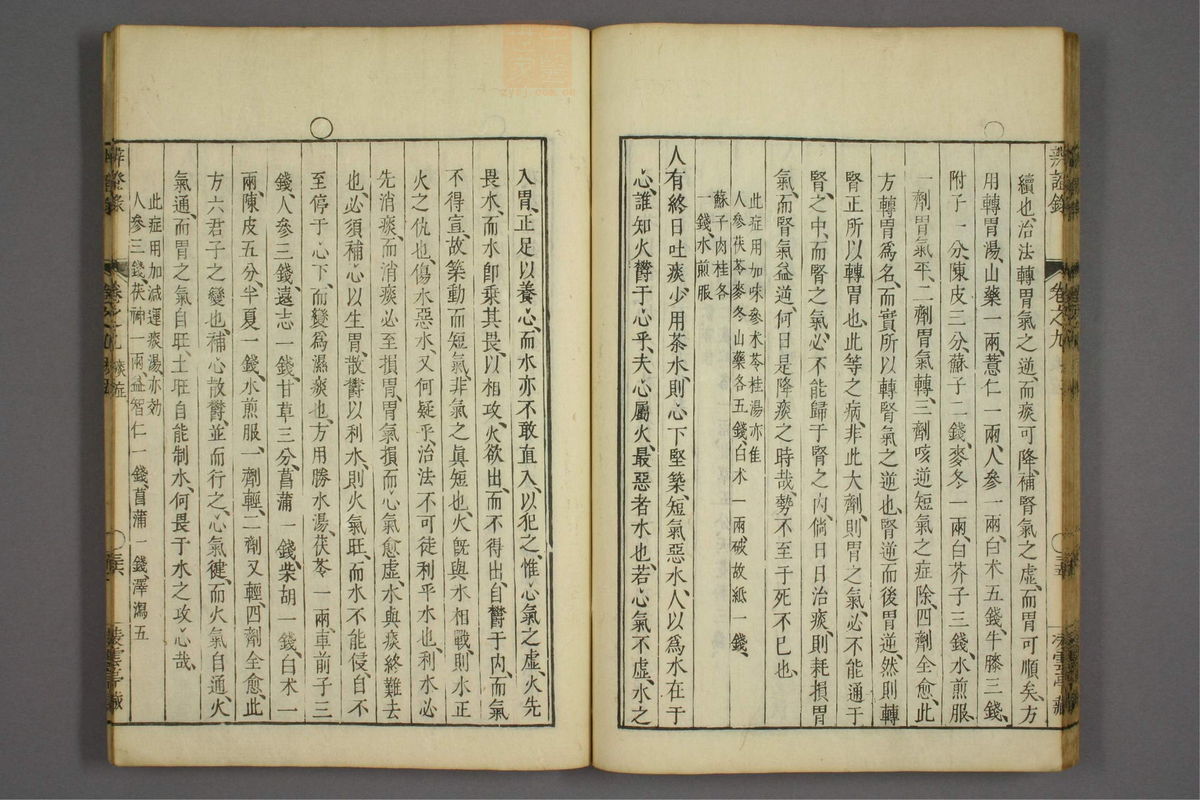 辨證錄 卷之九 凌雲亭藏
續也、治法轉胃氣之逆、而痰可降、補腎氣之虛、而胃可順矣、方
用轉胃湯、山藥一兩、薏仁一兩、人參一兩、白朮五錢、牛膝三錢、
附子一分、陳皮三分、蘇子二錢、麥冬一兩、白芥子三錢、水煎服、
一劑胃氣平、二劑胃氣轉、三劑咳逆短氣之症除、四劑全愈、此
方轉胃爲名、而實所以轉腎氣之逆也、腎逆而後胃逆、然則轉
腎正所以轉胃也、此等之病、非此大劑、則胃之氣、必不能通于
腎之中、而腎之氣、必不能歸于腎之內、倘日日治痰、則耗損胃
氣、而腎氣益逆、何日是降痰之時哉、勢不至于死不已也、
此症用加味參朮苓桂湯亦佳
人參茯苓麥冬山藥各五錢、白朮一兩、破故紙一錢、
蘇子肉桂各
一錢、水煎服
人有終日吐痰、少用茶水、則心下堅築、短氣惡水、人以爲水在于
心、誰知火鬱于心乎、夫心屬火、最惡者水也、若心氣不虛、水之
入胃、正足以養心、而水亦不敢直入、以犯之、惟心氣之虛、火先
畏水、而水卽乘其畏、以相攻、火欲出而不得出、自鬱于內、而氣
不得宣、故築動而短氣、非氣之眞短也、火旣與水相戰、則水正
火之仇也、傷水惡水、又何疑乎、治法不可徒利乎水也、利水必
先消痰、而消痰必至損胃、胃氣損而心氣愈虛、水與痰終難去
也、必須補心以生胃、散鬱以利水、則火氣旺、而水不能侵、自不
至停于心下、而變爲濕痰也、方用勝水湯、茯苓一兩、車前子三
錢、人參三錢、遠志一錢、甘草三分、菖蒲一錢、柴胡一錢、白朮一
兩、陳皮五分、半夏一錢、水煎服、一劑輕、二劑又輕、四劑全愈、此
方六君子之變也、補心散鬱、並而行之、心氣健、而火氣自通、火
氣通、而胃之氣自旺、土旺自能制水、何畏于水之攻心哉、
此症用加減運痰湯、亦効
人參三錢、茯神一兩、益智仁一錢、菖蒲一錢、澤瀉五